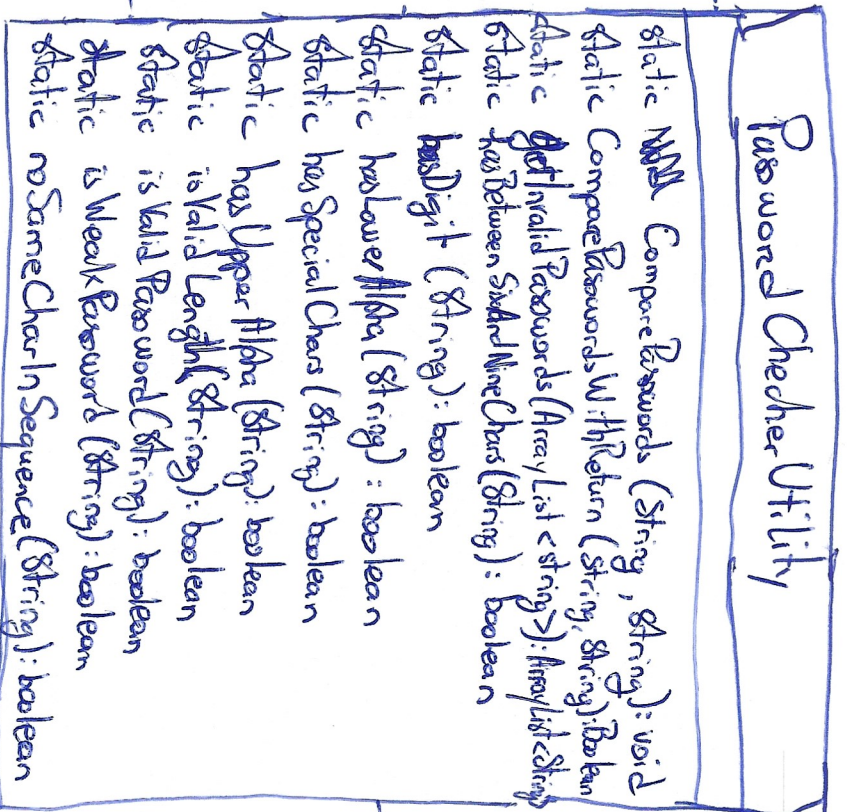 Password Checker Utility
static ComparePasswords (String, String): void
static ComparePasswordsWithReturn (String, String): Boolean
static getInvalidPasswords (ArrayList <string>): ArrayList<String>
static hasBetweenSixAndNineChars (String): boolean
static hasDigit (String): boolean
static hasLowerAlpha (String): boolean
static hasSpecialChars (String): boolean
static hasUpperAlpha (String): boolean
static isValidLength (String): boolean
static isValidPassword (String): boolean
static isWeakPassword (String): boolean
static noSameCharInSequence (String): boolean